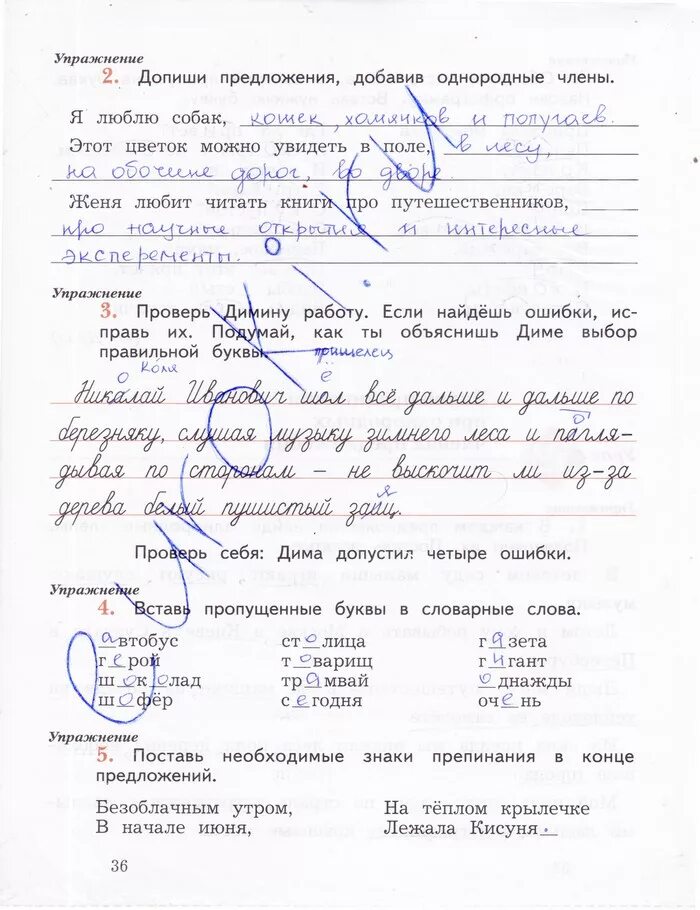 Упражнение
2. Допиши предложения, добавив однородные члены.
Я люблю собак, кошек, хомячков и попугаев.
Этот цветок можно увидеть в поле, в лесу,
на обочине дорог, во дворе.
Женя любит читать книги про путешественников,
про научные открытия и интересные
эксперементы.
Упражнение
3. Проверь Димину работу. Если найдёшь ошибки, ис-
правь их. Подумай, как ты объяснишь Диме выбор
правильной буквы.
Коля пришелец
о ё
Николай Иванович шол всё дальше и дальше по
о
березняку, слушая музыку зимнего леса и пагля-
дывая по сторонам – не выскочит ли из-за
я
дерева белый пушистый заиц.
Проверь себя: Дима допустил четыре ошибки.
Упражнение
4. Вставь пропущенные буквы в словарные слова.
автобус столица газета
герой товарищ гигант
шоколад трамвай однажды
шофёр сегодня очень
Упражнение
5. Поставь необходимые знаки препинания в конце
предложений.
Безоблачным утром, На тёплом крылечке
В начале июня, Лежала Кисуня.
36